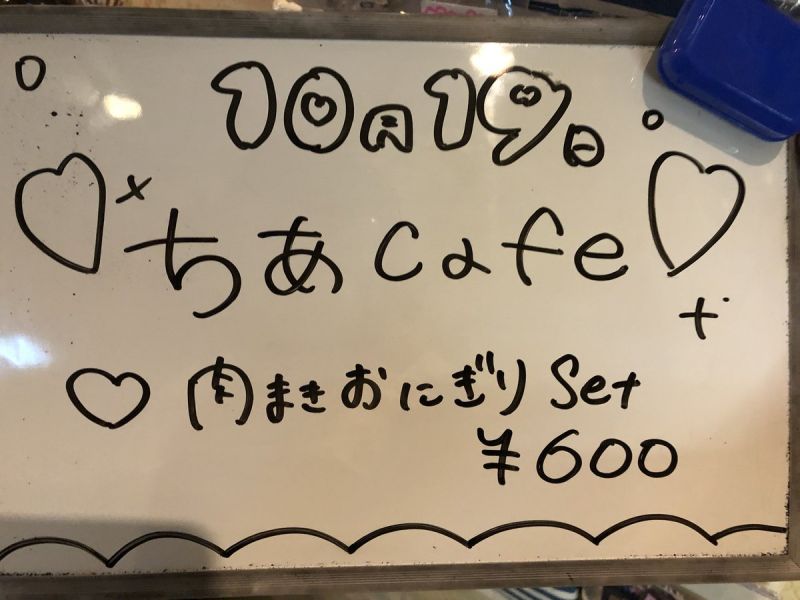 10月19日
ちあcafe
肉まきおにぎりSet
¥600